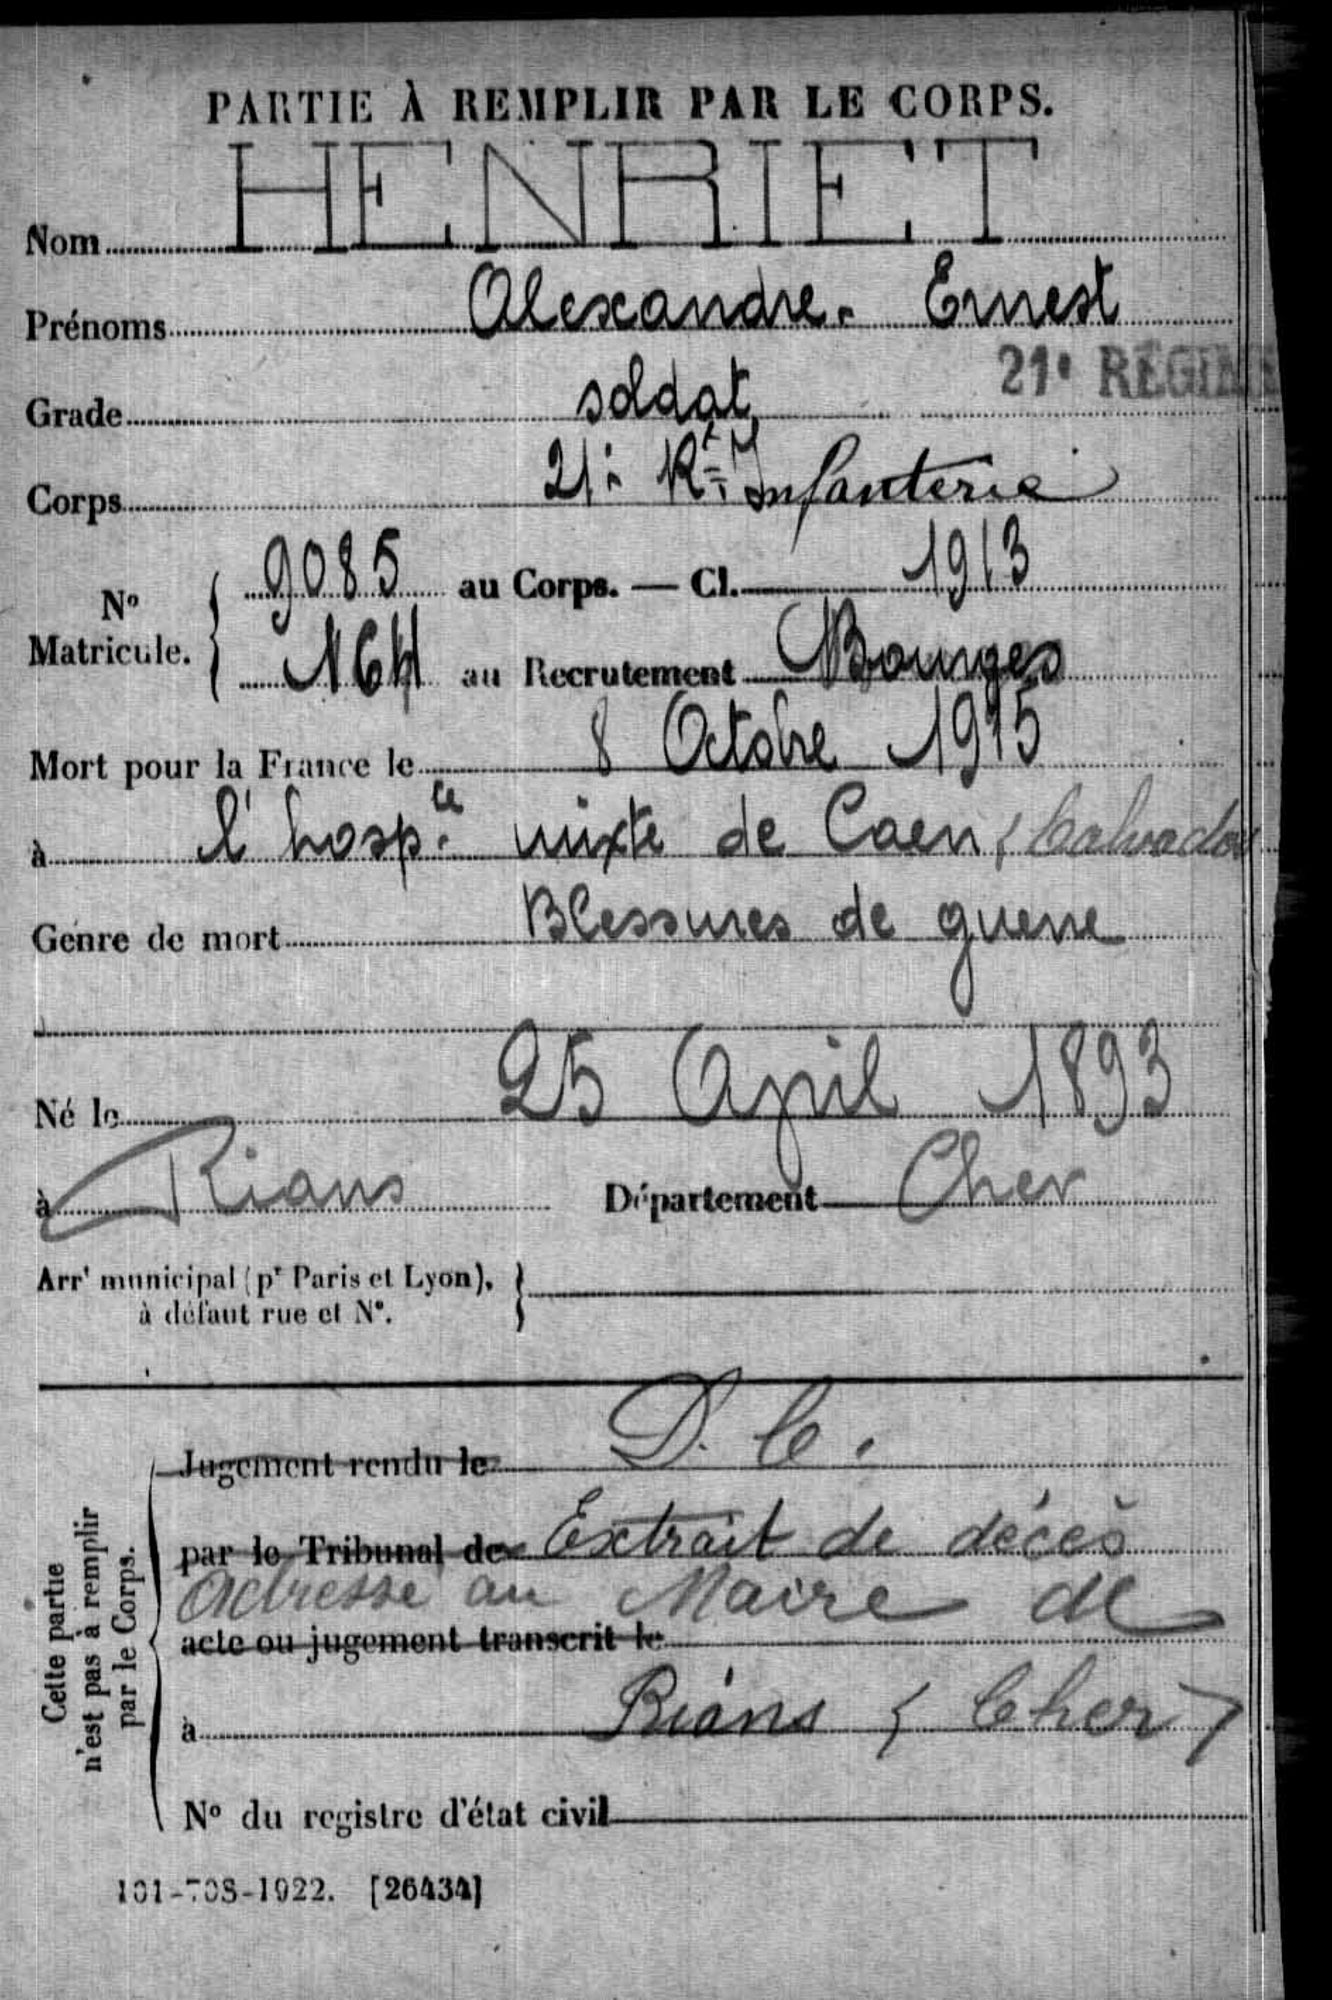 PARTIE À REMPLIR PAR LE CORPS.
Nom HENRIET
Prénoms Alexandre. Ernest
21e RÉGIM
Grade soldat
Corps 21e Rt Infanterie
No Matricule. { 9085 au Corps. — Cl. 1913
1164 au Recrutement Bourges
Mort pour la France le 8 Octobre 1915
à l'hospce mixte de Caen (Calvados
Genre de mort Blessures de guerre
Né le 25 April 1893
à Rians Département Cher
Arrt municipal (pr Paris et Lyon), }
à défaut rue et No.
Cette partie
n'est pas à remplir
par le Corps.
Jugement rendu le D. C.
par le Tribunal de Extrait de décès
adressé au Maire de
acte ou jugement transcrit le
à Rians (Cher)
No du registre d'état civil
101-708-1922. [26434]